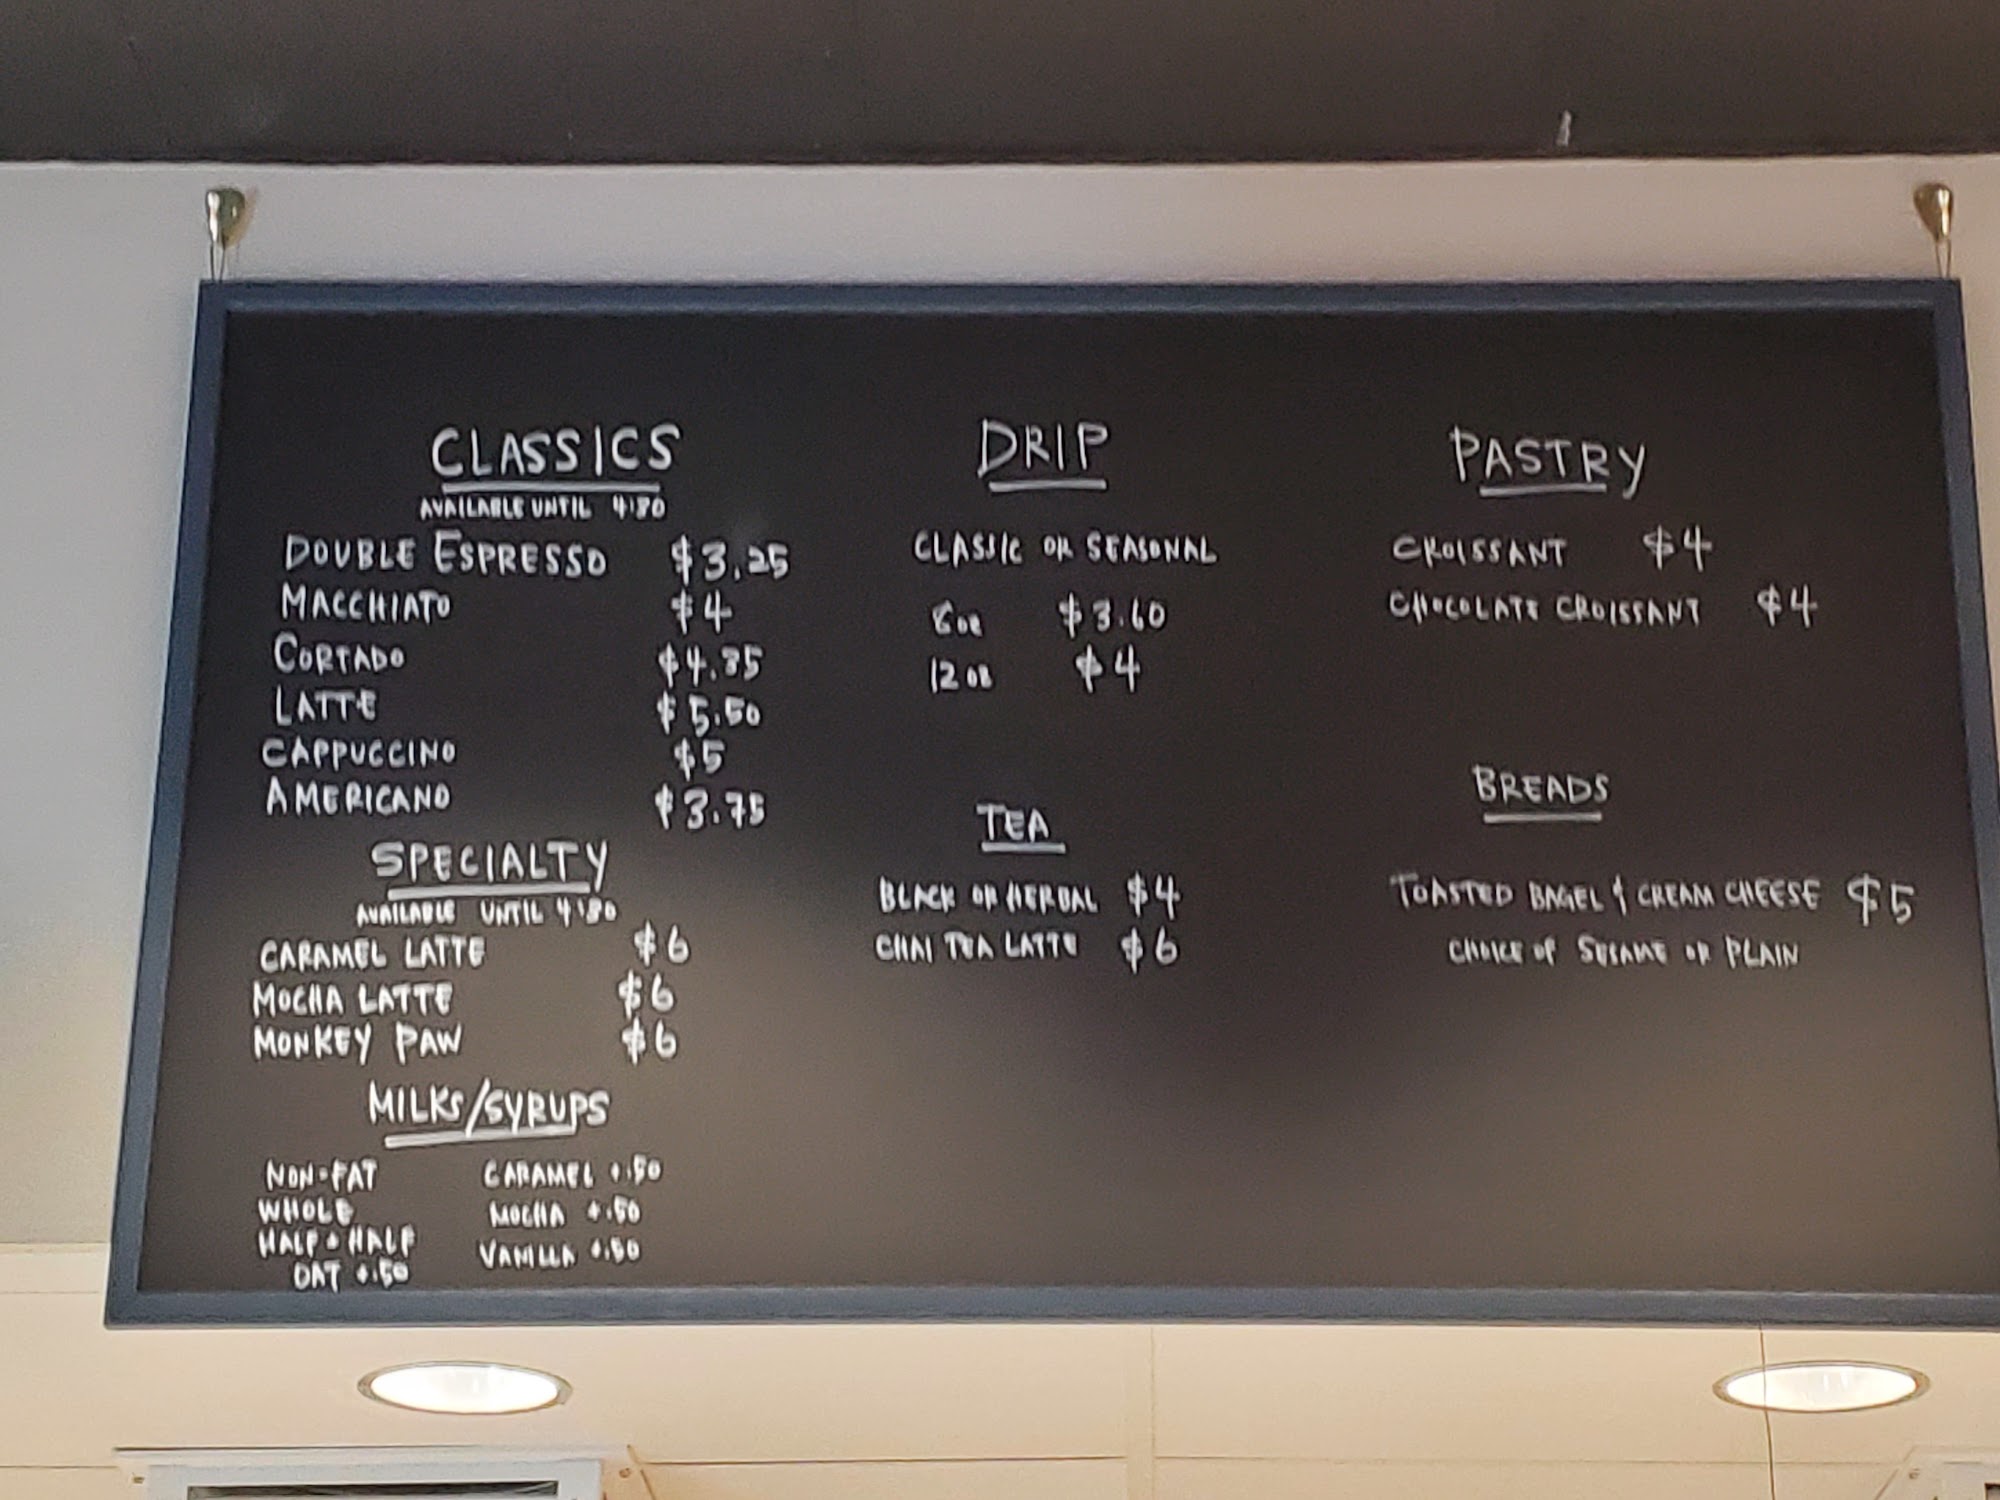 CLASSICS
AVAILABLE UNTIL 4:30
DOUBLE ESPRESSO $3.25
MACCHIATO $4
CORTADO
LATTE $5.50
CAPPUCCINO $5
AMERICANO $3.75
SPECIALTY
AVAILABLE UNTIL 4:30
CARAMEL LATTE $6
MOCHA LATTE $6
MONKEY PAW $6
MILKS/SYRUPS
NON-FAT
WHOLE
HALF & HALF
OAT +.50
CARAMEL +.50
MOCHA +.50
VANILLA +.50
DRIP
CLASSIC OR SEASONAL
8oz $3.60
12oz $4
TEA
BLACK OR HERBAL $4
CHAI TEA LATTE $6
PASTRY
CROISSANT $4
CHOCOLATE CROISSANT $4
BREADS
TOASTED BAGEL & CREAM CHEESE $5
CHOICE OF SESAME OR PLAIN